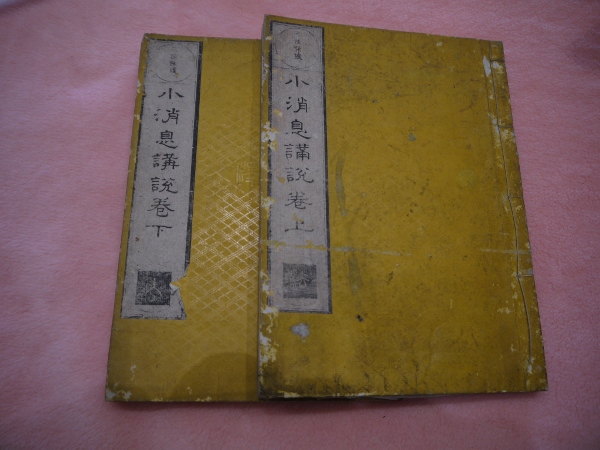 小消息講說卷上
小消息講說卷下